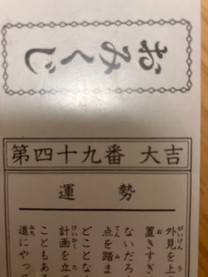 おみくじ
第四十九番 大吉
運勢
外見を上
置きすぎ
ないだろ
点を踏ま
どことな
計画を立
こともあ
道にやっ